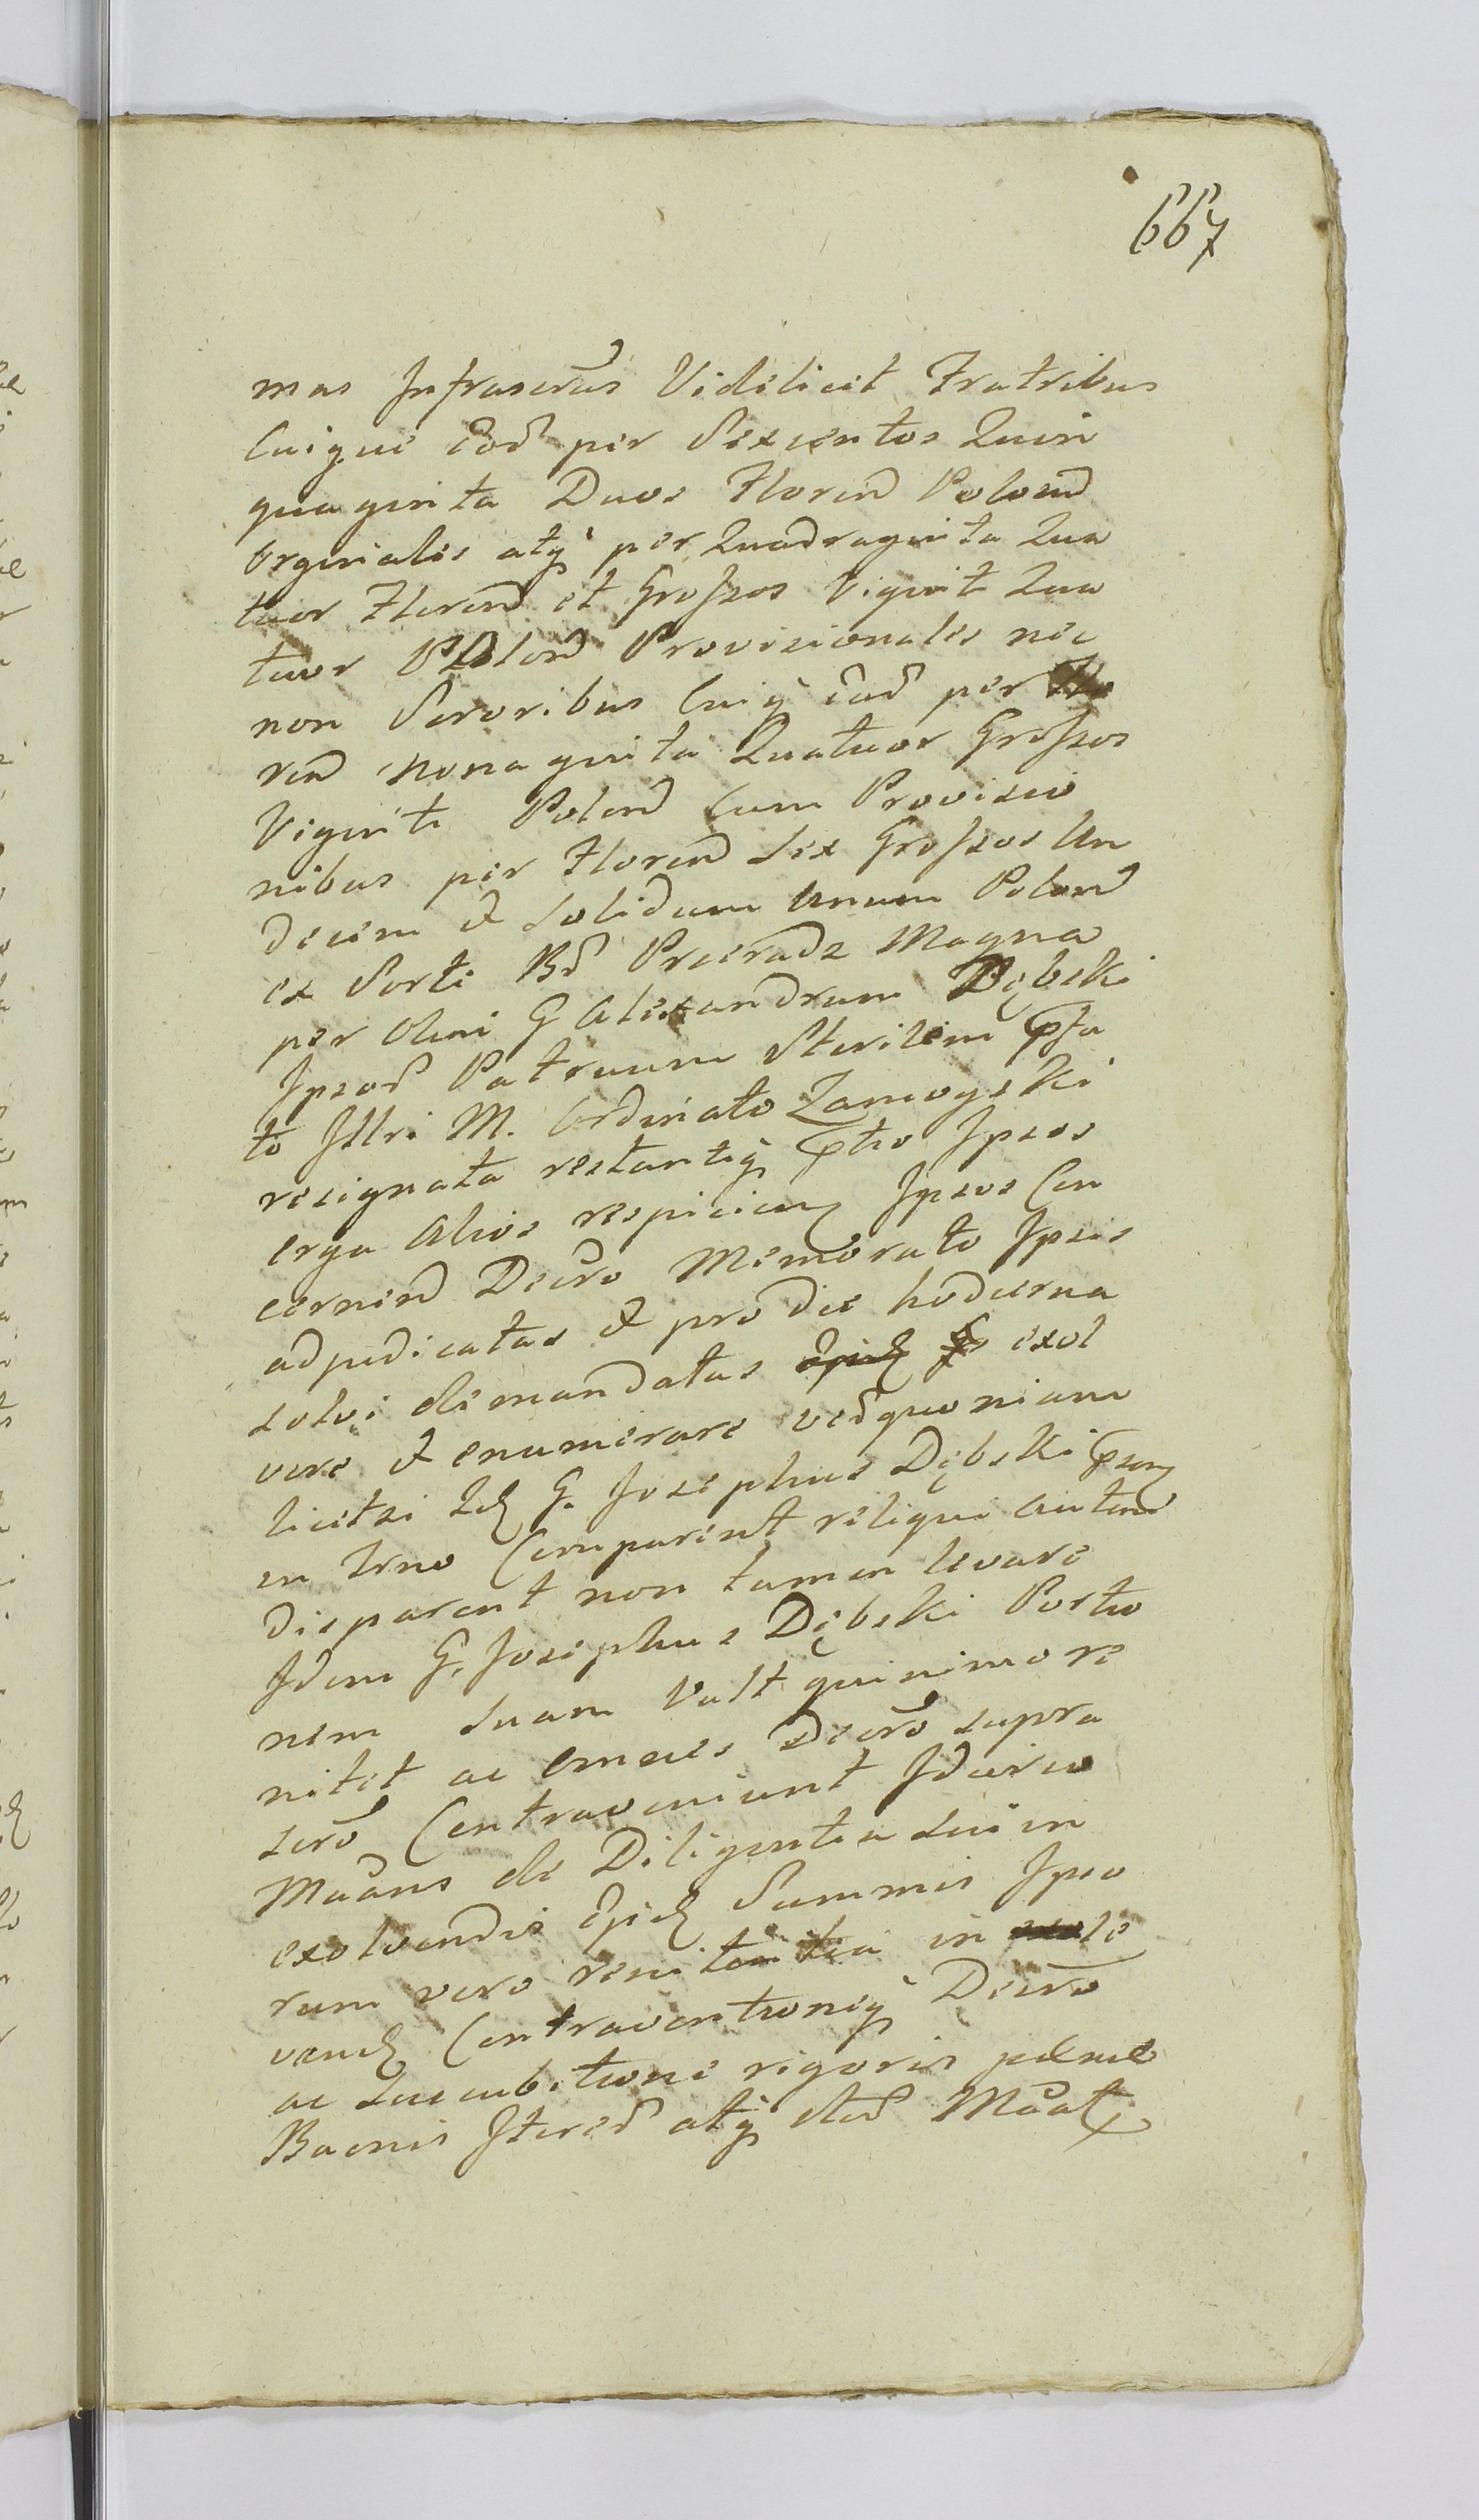 667
mas Infrascrās Videlicet Fratribus
Cuique eod per Sexcentos Quin
quaginta Duos Floren Polon
Orginales atq per Quadraginta Qua
tuor Floren et Groszos Viginti Qua
tuor Polon Provisionales nec
non Sororibus Cuiq ead per Flo
ren Nonaginta Quatuor Groszos
Viginti Polon Cum Provisio
nibus per Floren Sex Groszos Un
decim et Solidum Unum Polon
ex Sorte Bo Przeradz Magna
per Olim G Alexandrum Dębski
Ipsoȓ Patruum Sterilem
to Illri M. Ordinato Zamoyski
resignata restantiq Ipsos
erga Alios respicien Ipsos Con
cernen Decro Memorato Ipsis
adjudicatas et pro die hodierna
solvi demandatas exol
vere et enumerare veȓ quoniam
licet si G. Josephus Dębski
in Trno Comparent reliqui autem
disparent non tamen levare
Idem G. Josephus Dębski Portio
nem Suam Vult quinimo re
nitet ac omnes Decro supra
scro Contraveniunt Idcirco
Maans de Diligentia sui in
exolvendis Summis Ipso
rum vero renitentia in le
vand Contraventioneq Decro
ac Succubitione rigoris pænæ
Baenis Itereȓ atq steȓ Maat